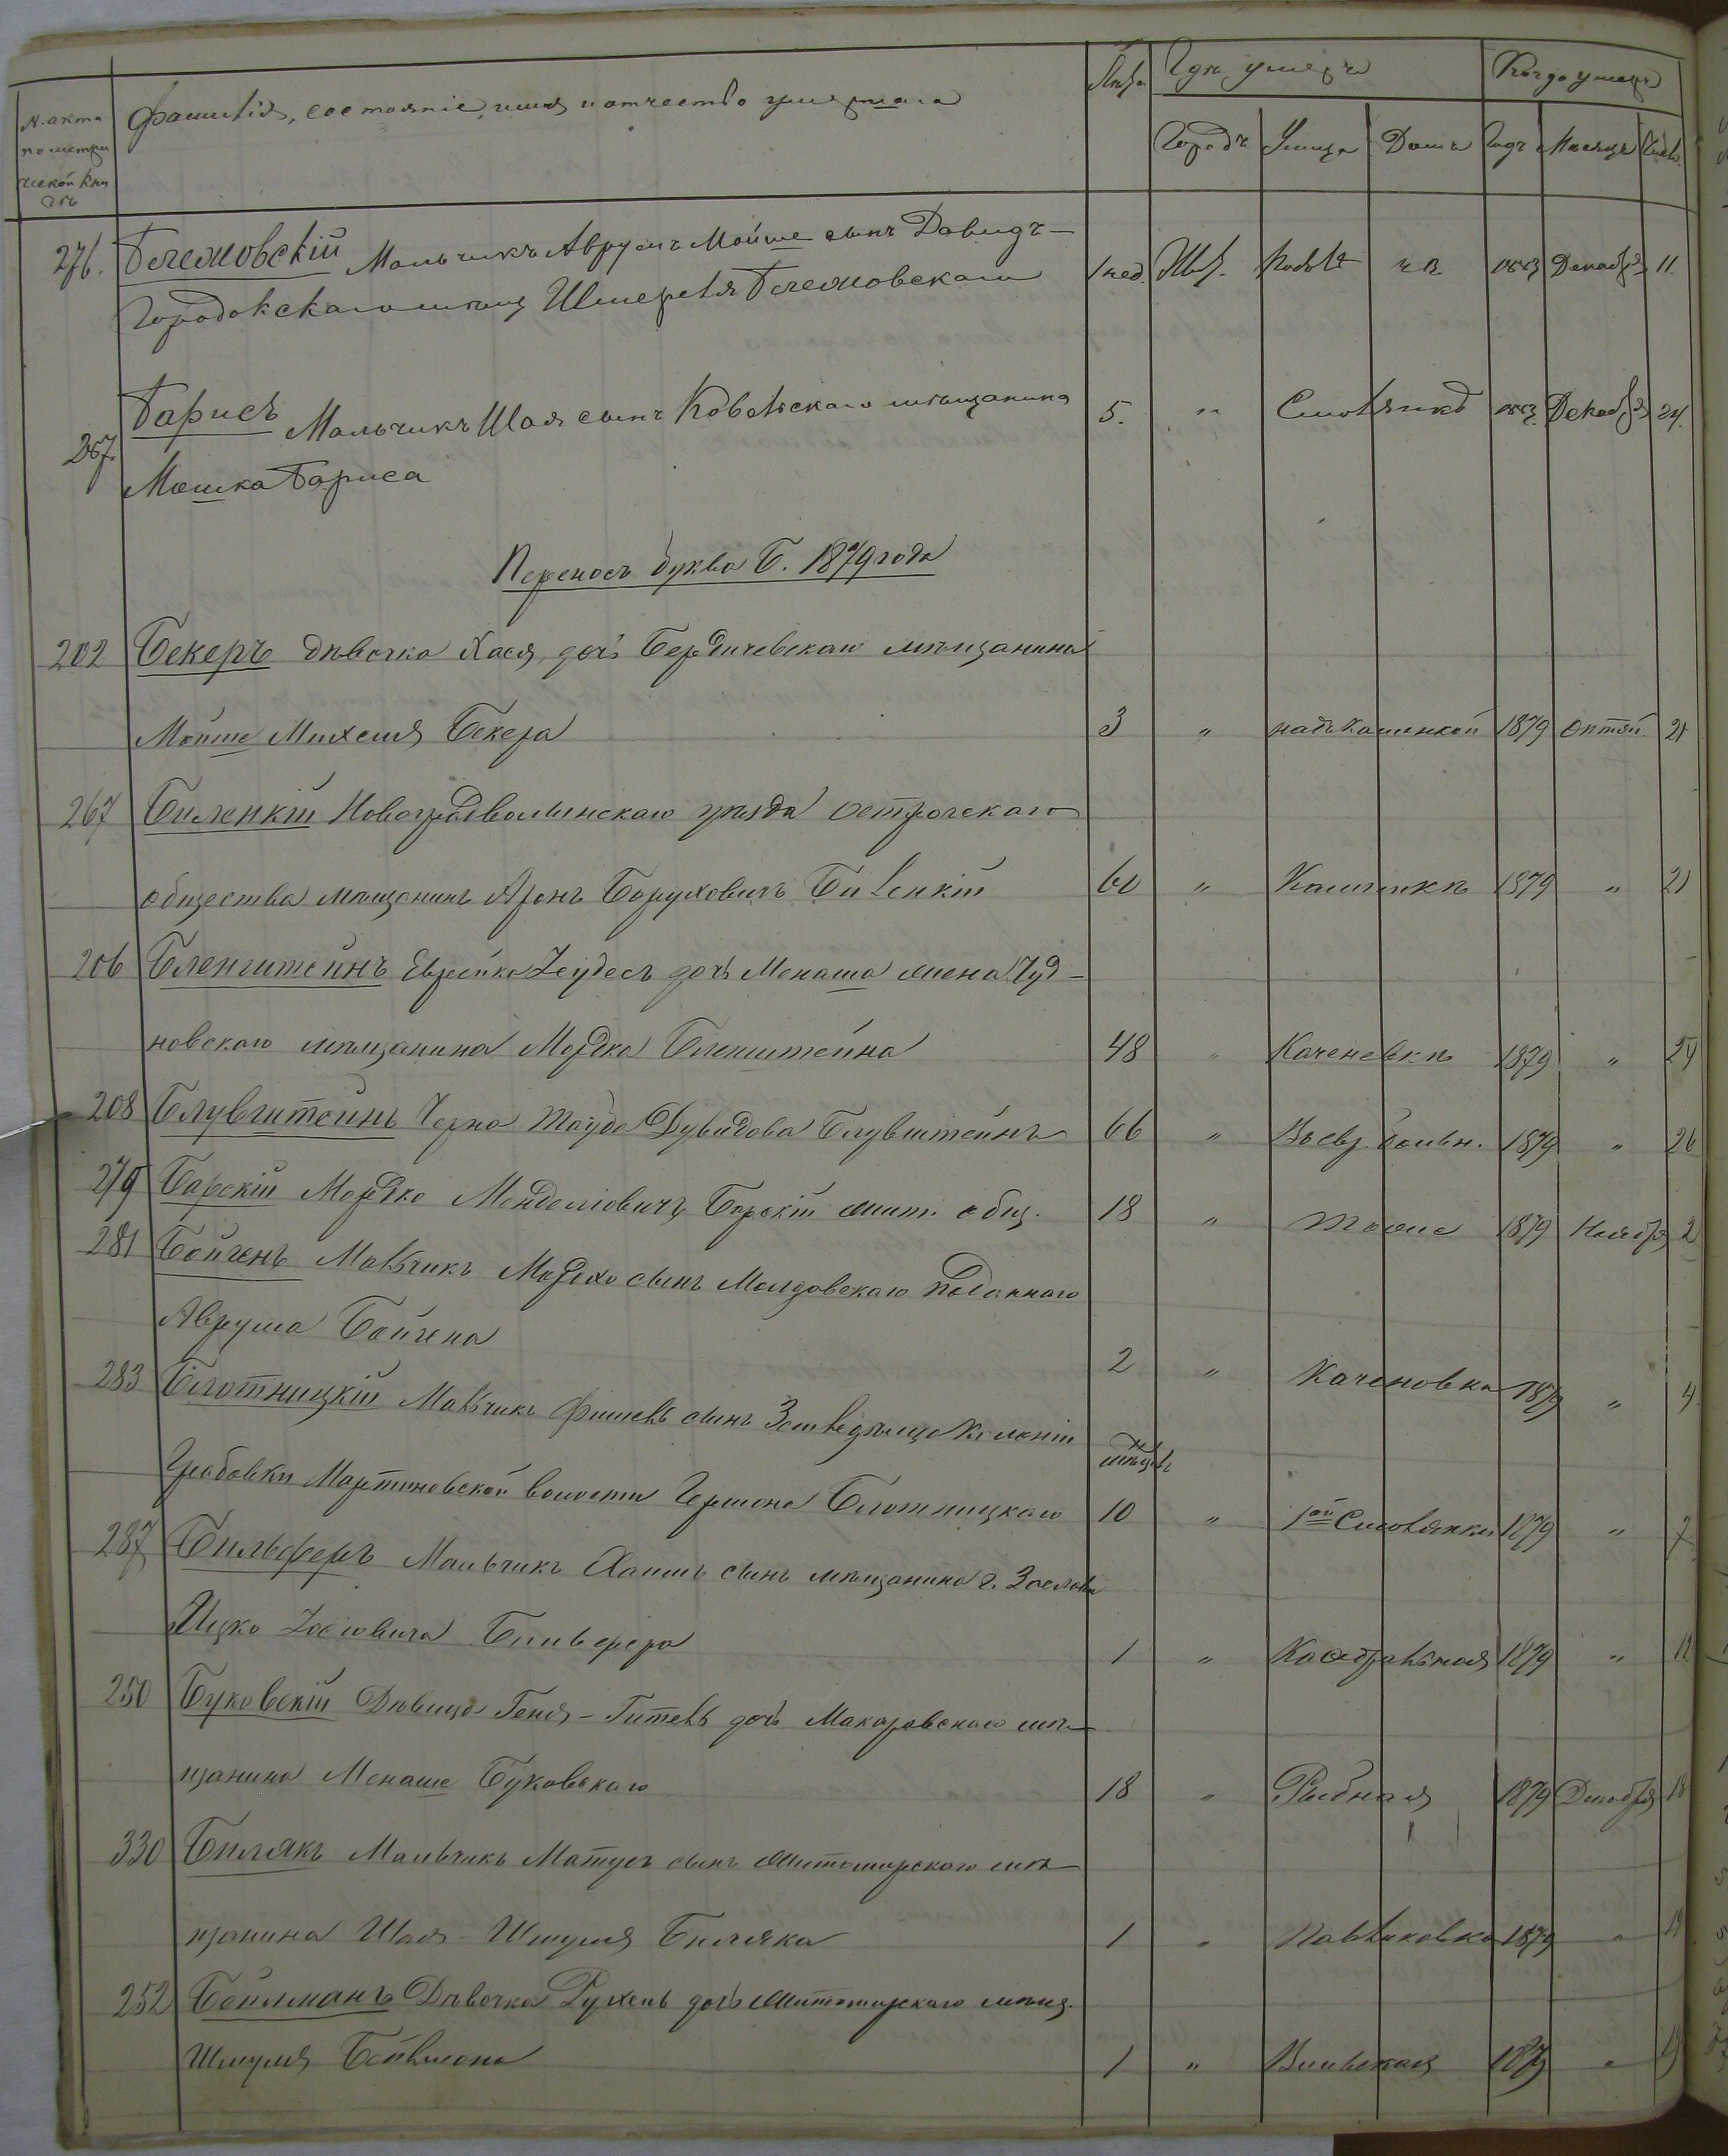 N. акта по метрической книгѣ
Фамилія, состояніе, имя и отчество умершаго
Лѣта
Гдѣ умеръ
Когда умеръ
Городъ Улица Домъ Годъ Мѣсяцъ Число
276. Мальчикъ Аврумъ Мойше сынъ Давидъ-
Городокскаго мѣщ. Шмереля 1 нед. Жит. ч. в. Декабр. 11.
267. Барисъ Мальчикъ Шая сынъ Ковельскаго мѣщанина 5. " Декабр. 24.
Мошка Бариса
Переносъ буква Б. 1879 года
202 Бекеръ дѣвочка Хася, дочь Бердичевскаго мѣщанина
Мойше Михеля Бекера 3 " надъ Каменкой 1879 Октяб. 21
267 Биленкій Новоградволынскаго уѣзда острогскаго
общества мѣщанинъ Аронъ Боруховичъ Биленкій 60 " 1879 " 21
206 Бленштейнъ Еврейка дочь Менаша жена Чуд-
новскаго мѣщанина Мордка Бленштейна 48 " Каченовкѣ 1879 " 24
208 Блувштейнъ Черна Тауба Дувидова Блувштейнъ 66 " Въ евр. больн. 1879 " 26
279 Барскій Мордко Менделіовичъ Барскій жит. общ. 18 " тоже 1879 Ноября 2
281 Бойгенъ Мальчикъ Мордко сынъ Молдовскаго подданнаго
Аврума Бойгена 2 " Каченовка 1879 " 4
283 Блотницкій Мальчикъ Фишель сынъ Земледѣльца колоніи
Грабовки Мартиновской волости Гершона Блотницкаго мѣсяц. 10 " 1ой Смолянки 1879 " 7
287 Бильферъ Мальчикъ Хаимъ сынъ мѣщанина г. Заслава
Ицко Іосіовича Бильфера 1 " Кафедральная 1879 " 12
250 Буковскій Дѣвица Геня-Гитель дочь Макаровскаго мѣ-
щанина Менаше Буковскаго 18 " Рыбная 1879 Декабря 18
330 Билякъ Мальчикъ Матусъ сынъ Житомирскаго мѣ-
щанина Шая-Шмуля Биляка 1 " Павликовка 1879 " 19
252 Бейлманъ Дѣвочка Рухель дочь Житомирскаго мѣщ.
Шмуля Бейлмана 1 " Вильская 1879 " 19